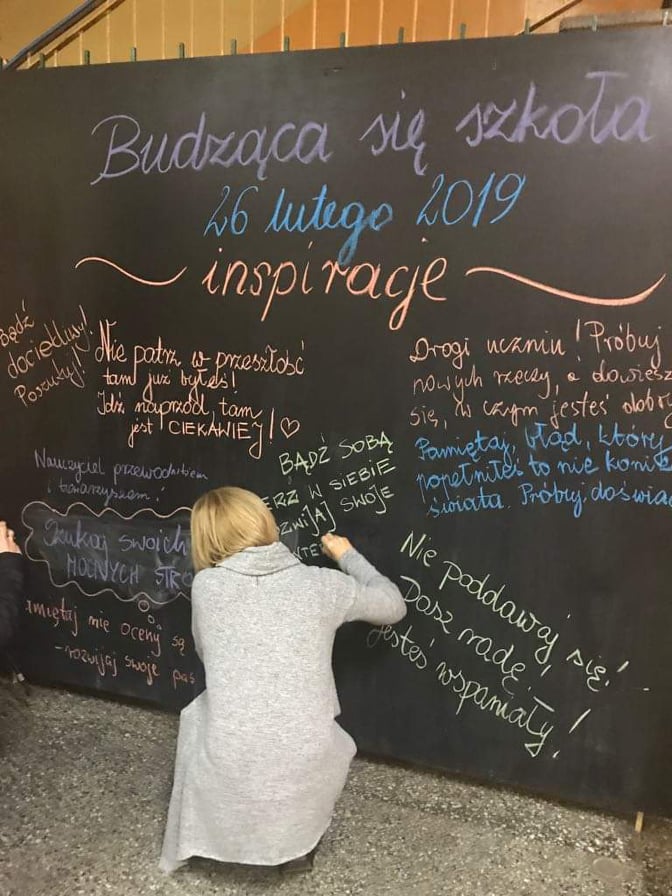 Budząca się szkoła
26 lutego 2019
inspiracje
Bądź
dociekliwy!
Poszukuj!
Nie patrz w przeszłość
tam już byłeś!
Idź naprzód, tam
jest CIEKAWIEJ! ♡
Nauczyciel przewodnikiem
i towarzyszem!
Szukaj swoich
MOCNYCH STRO
miętaj nie oceny są
-rozwijaj swoje pas
BĄDŹ SOBĄ
ERZ W SIEBIE
ZWIJAJ SWOJE
Drogi uczniu! Próbuj
nowych rzeczy, a dowiesz
się, w czym jesteś dobry
Pamiętaj, błąd, który
popełniłeś to nie konie
świata. Próbuj, doświad
Nie poddawaj się!
Dasz radę!
Jesteś wspaniały!